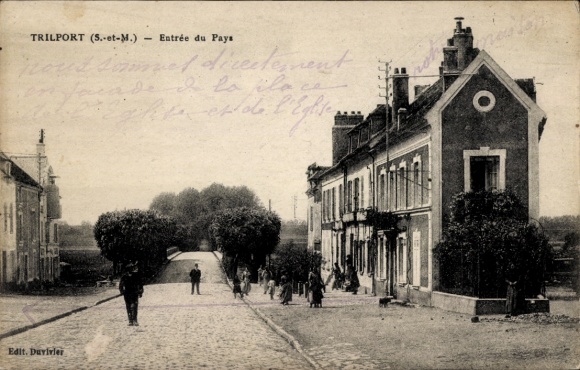 TRILPORT (S.-et-M.) — Entrée du Pays
nous sommes directement
en façade de la place
de l'Eglise et de l'Eglise
Edit. Duvivier